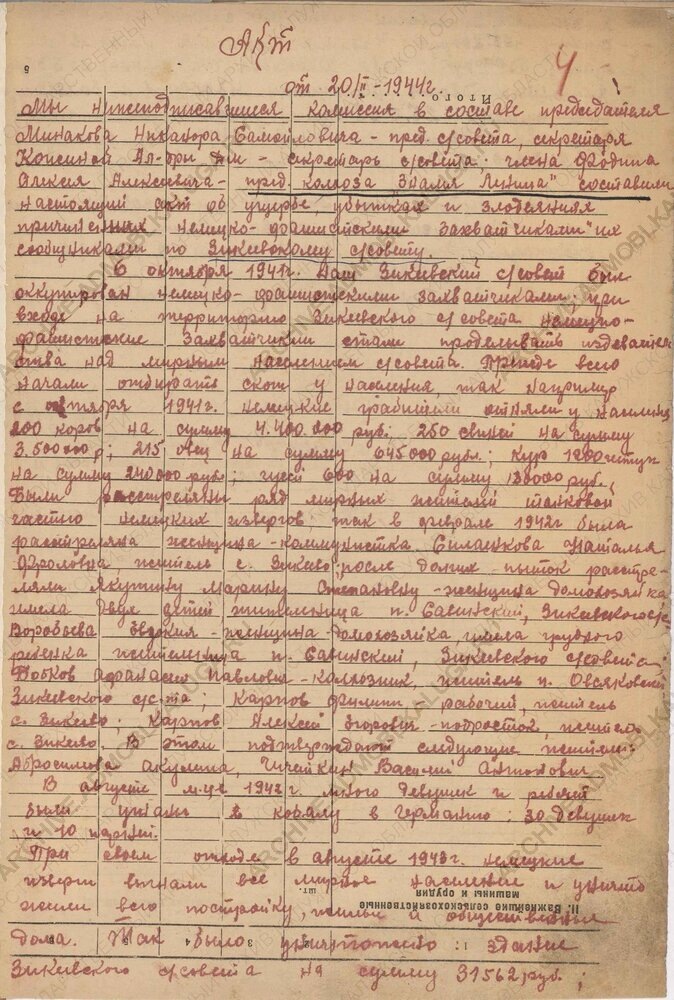 Акт
от 20/II-1944г.
4
Итого
Мы нижеподписавшиеся комиссия в составе председателя
Минакова Никанора Самойловича - пред. с/совета, секретаря
- секретарь с/совета. члена Фодина
Алексея Алексеевича - пред. колхоза "Знамя Ленина" составили
настоящий акт об ущербе, убытках и злодеяния
причиненных немецко-фашистскими захватчиками "их
сообщниками по Зикеевскому с/совету.
6 октября 1941г. наш Зикеевский с/совет был
оккупирован немецко-фашистскими захватчиками; при
входе на территорию Зикеевского с/совета немецко-
фашистские захватчики стали проделывать издеватель
ства над мирным населением с/совета. Прежде всего
начали отбирать скот у населения, так например
с октября 1941г. немецкие грабители отняли у населения
200 коров на сумму 4.400.000 руб; 250 свиней на сумму
3.500000р; 215 овец на сумму 645000 рубл.; кур 1200 штук
на сумму 240000 рубл; гусей 600 на сумму 180000 руб.,
Были расстреляны ряд мирных жителей танковой
частью немецких извергов так в феврале 1942г была
расстреляна женщина-коммунистка Силашкова Наталья
Фроловна, житель с. Зикеево; после долгих пыток расстре-
ляли Якутину Марину Степановну - женщина домохозяйка
имела двух детей жительница п. Савинский, Зикеевского с/с
Воробьева Евдокия - женщина-домохозяйка, имела грудного
ребенка жительница п. Савинский, Зикеевского с/совета;
Бобков Афанасий Павлович - колхозник, житель п. Овсяковский
Зикеевского с/с-та; Карпов Филипп, рабочий, житель
с. Зикеево. Карпов Алексей Егорович - подросток, житель
с. Зикеево. В этом подтверждают следующие жители:
Абросимова Акулина, Василий Антонович
В августе м-це 1942г. много девушек и ребят
были угнаны в кабалу в Германию: 30 девушек
и 10 парней.
При своем отходе в августе 1943г. немецкие
изверги выгнали все мирное население и уничто
жили всю постройку, жилые и общественные
II. Важнейшие сельскохозяйственные
машины и орудия
шт.
дома. Так было уничтожено: здание
Зикеевского с/совета на сумму 31562 руб.;